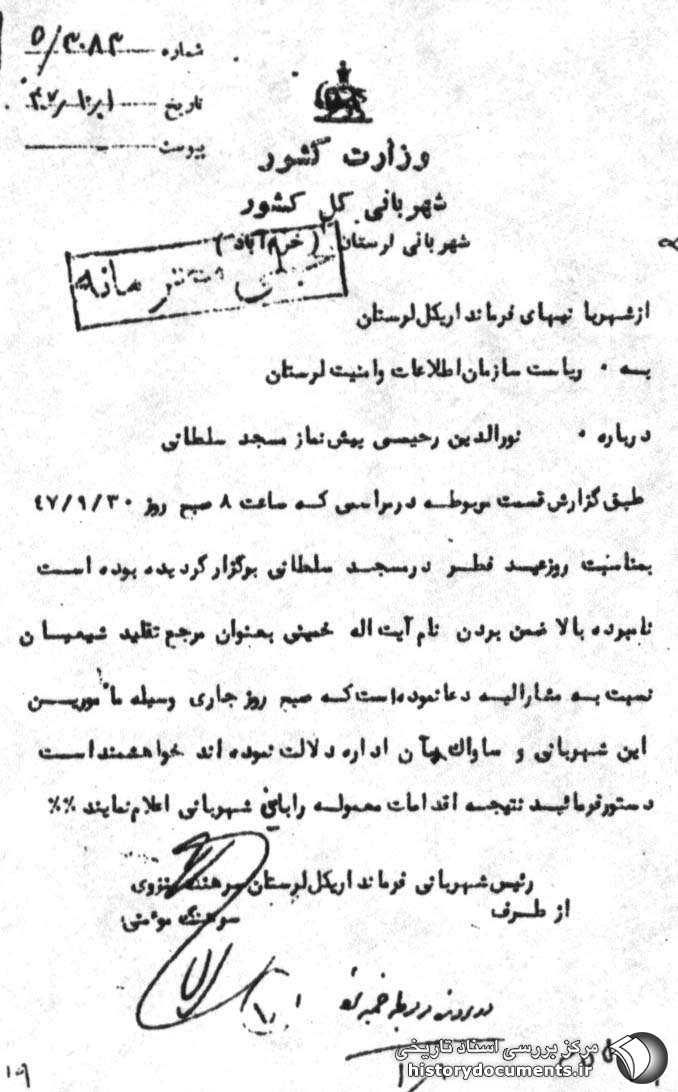 شماره ۵/۳۰۸۳
تاریخ
پیوست
وزارت کشور
شهربانی کل کشور
شهربانی لرستان (خرم‌آباد)
خیلی محرمانه
از شهربانیهای فرمانداریکل لرستان
به ۰ ریاست سازمان اطلاعات وامنیت لرستان
درباره ۰ نورالدین رحیمی پیش نماز مسجد سلطانی
طبق گزارش قسمت مربوطه درمراسمی که ساعت ۸ صبح روز ۴۷/۹/۳۰
بمناسبت روزعید فطر درمسجد سلطانی برگزار گردیده بوده است
نامبوده بالا ضمن بردن نام آیت اله خمینی بعنوان مرجع تقلید شیعیان
نسبت به مشارالیه دعا نموده است که صبح روز جاری وسیله مأمورین
این شهربانی و ساواک بآن اداره دلالت نموده اند خواهشمند است
دستور فرمائید نتیجه اقدامات معموله را باین شهربانی اعلام نمایند %%
رئیس شهربانی فرمانداریکل لرستان سرهنگ
از طرف سرهنگ مؤمنی
در پرونده مربوطه
مرکز بررسی اسناد تاریخی
historydocuments.ir